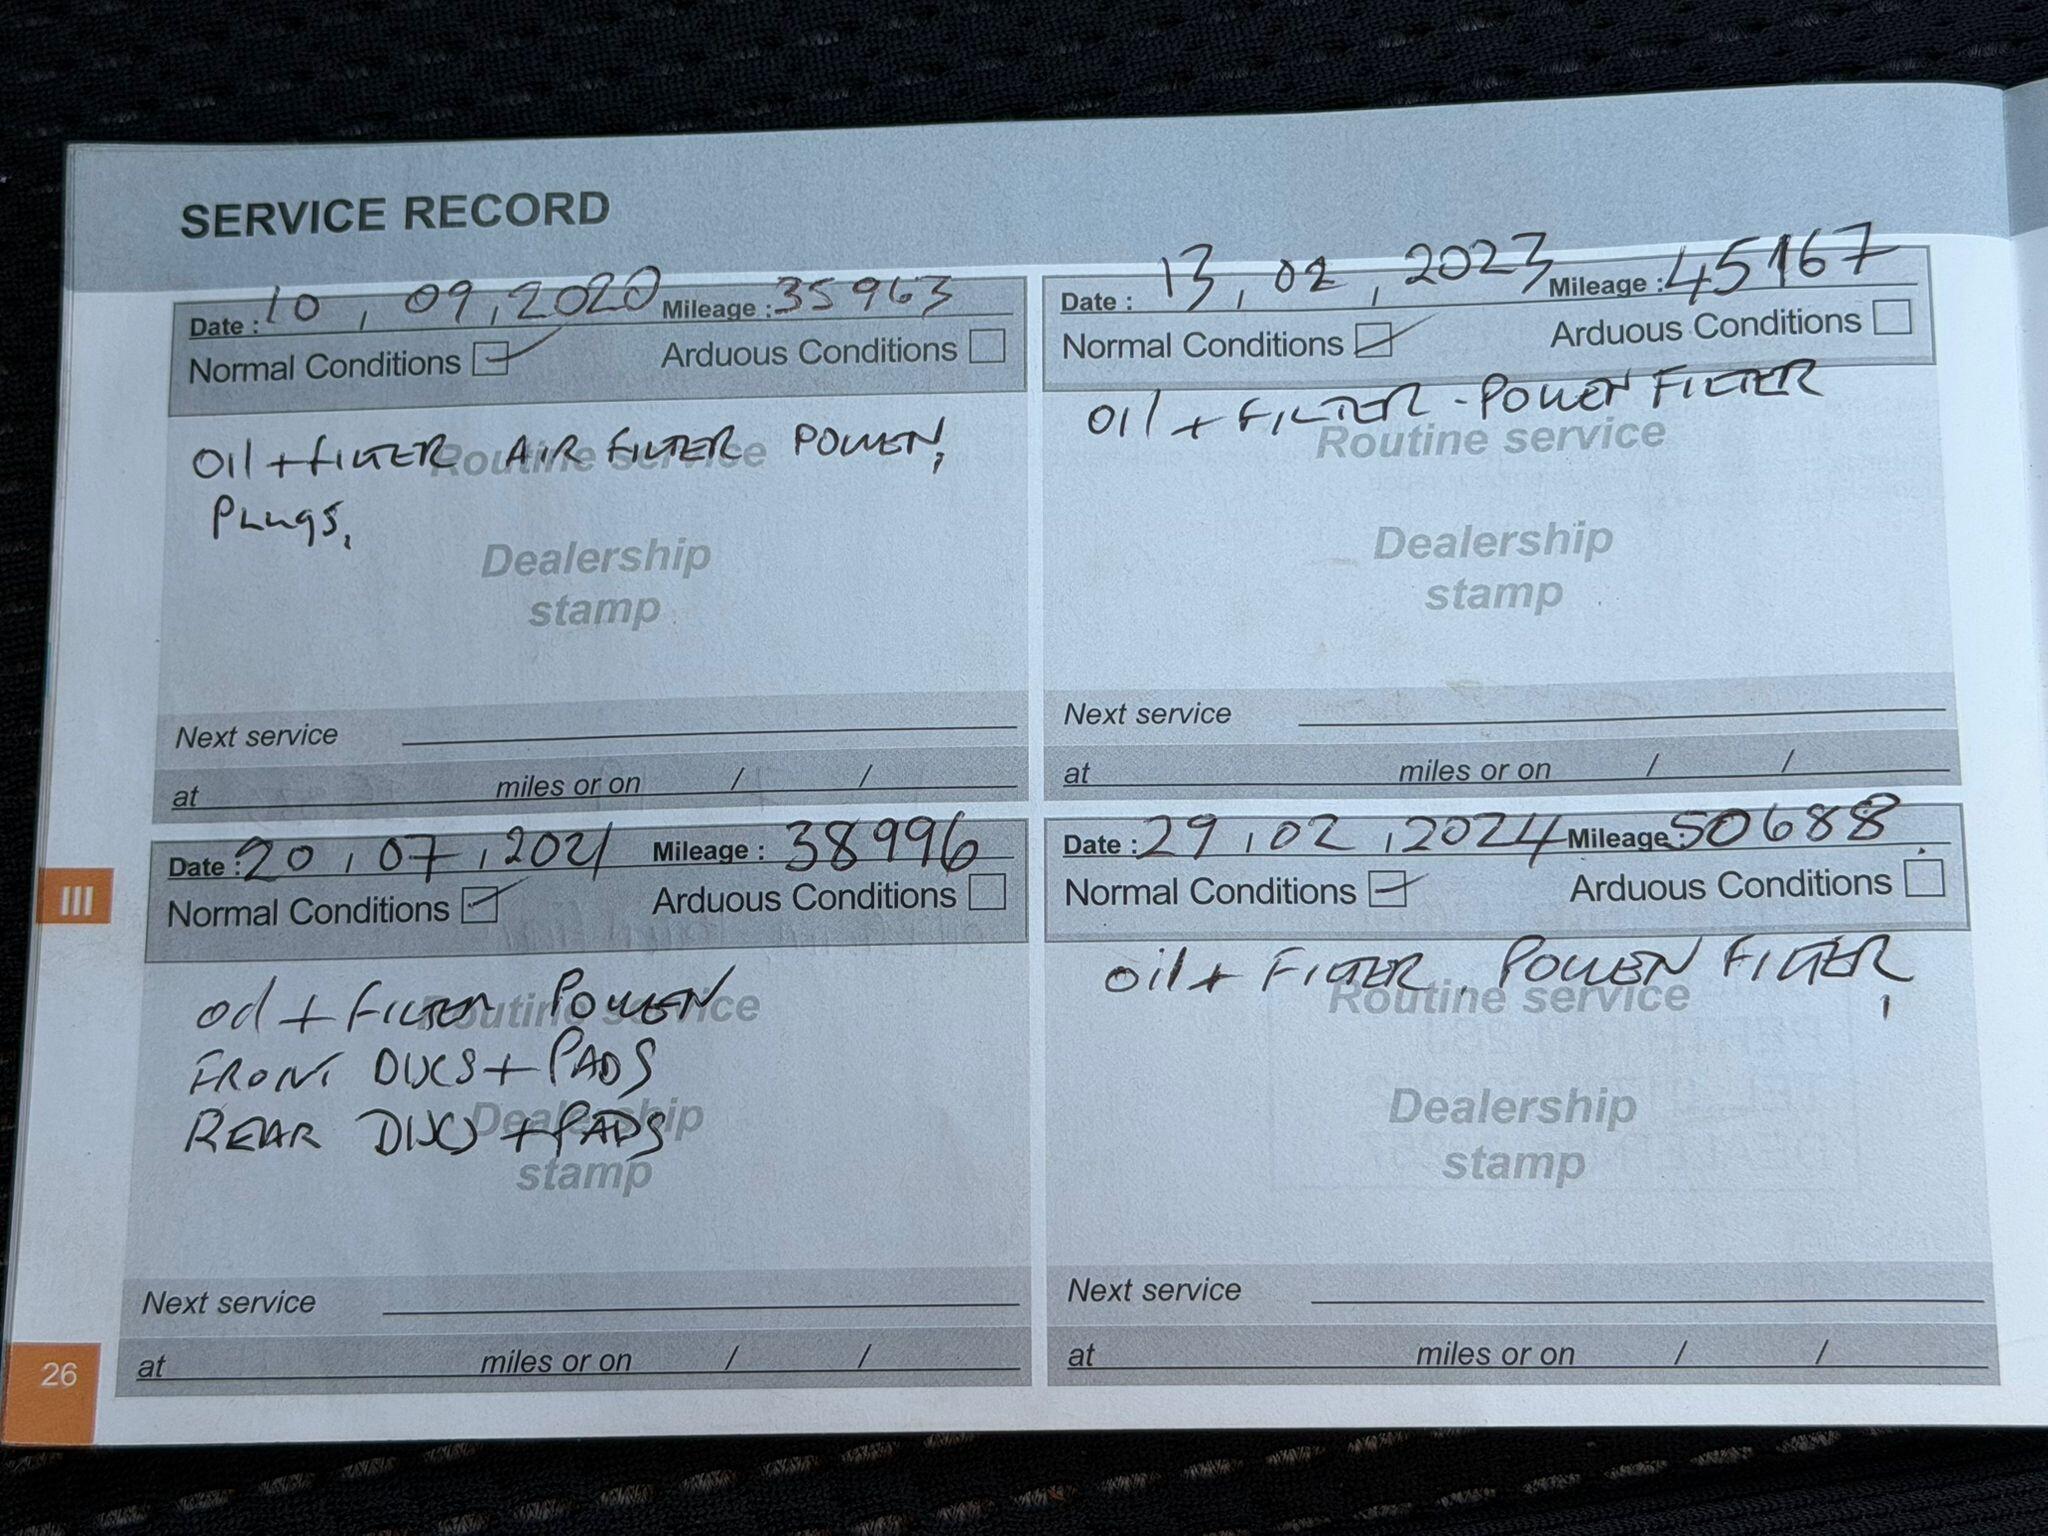 SERVICE RECORD
Date : 10 , 09 , 2020 Mileage : 35963
Normal Conditions Arduous Conditions
Oil + FILTER AIR FILTER POLLEN,
PLugs,
Routine service
Dealership
stamp
Next service
at miles or on / /
Date : 20 , 07 , 2021 Mileage : 38996
Normal Conditions Arduous Conditions
Oil + FILTER POLLEN
FRONT DISCS + PADS
REAR DISCS + PADS
Routine service
Dealership
stamp
Next service
at miles or on / /
Date : 13 , 02 , 2023 Mileage : 45167
Normal Conditions Arduous Conditions
OIl + FILTER - POLLEN FILTER
Routine service
Dealership
stamp
Next service
at miles or on / /
Date : 29 , 02 , 2024 Mileage : 50688
Normal Conditions Arduous Conditions
Oil + FILTER , POLLEN FILTER ,
Routine service
Dealership
stamp
Next service
at miles or on / /
III
26